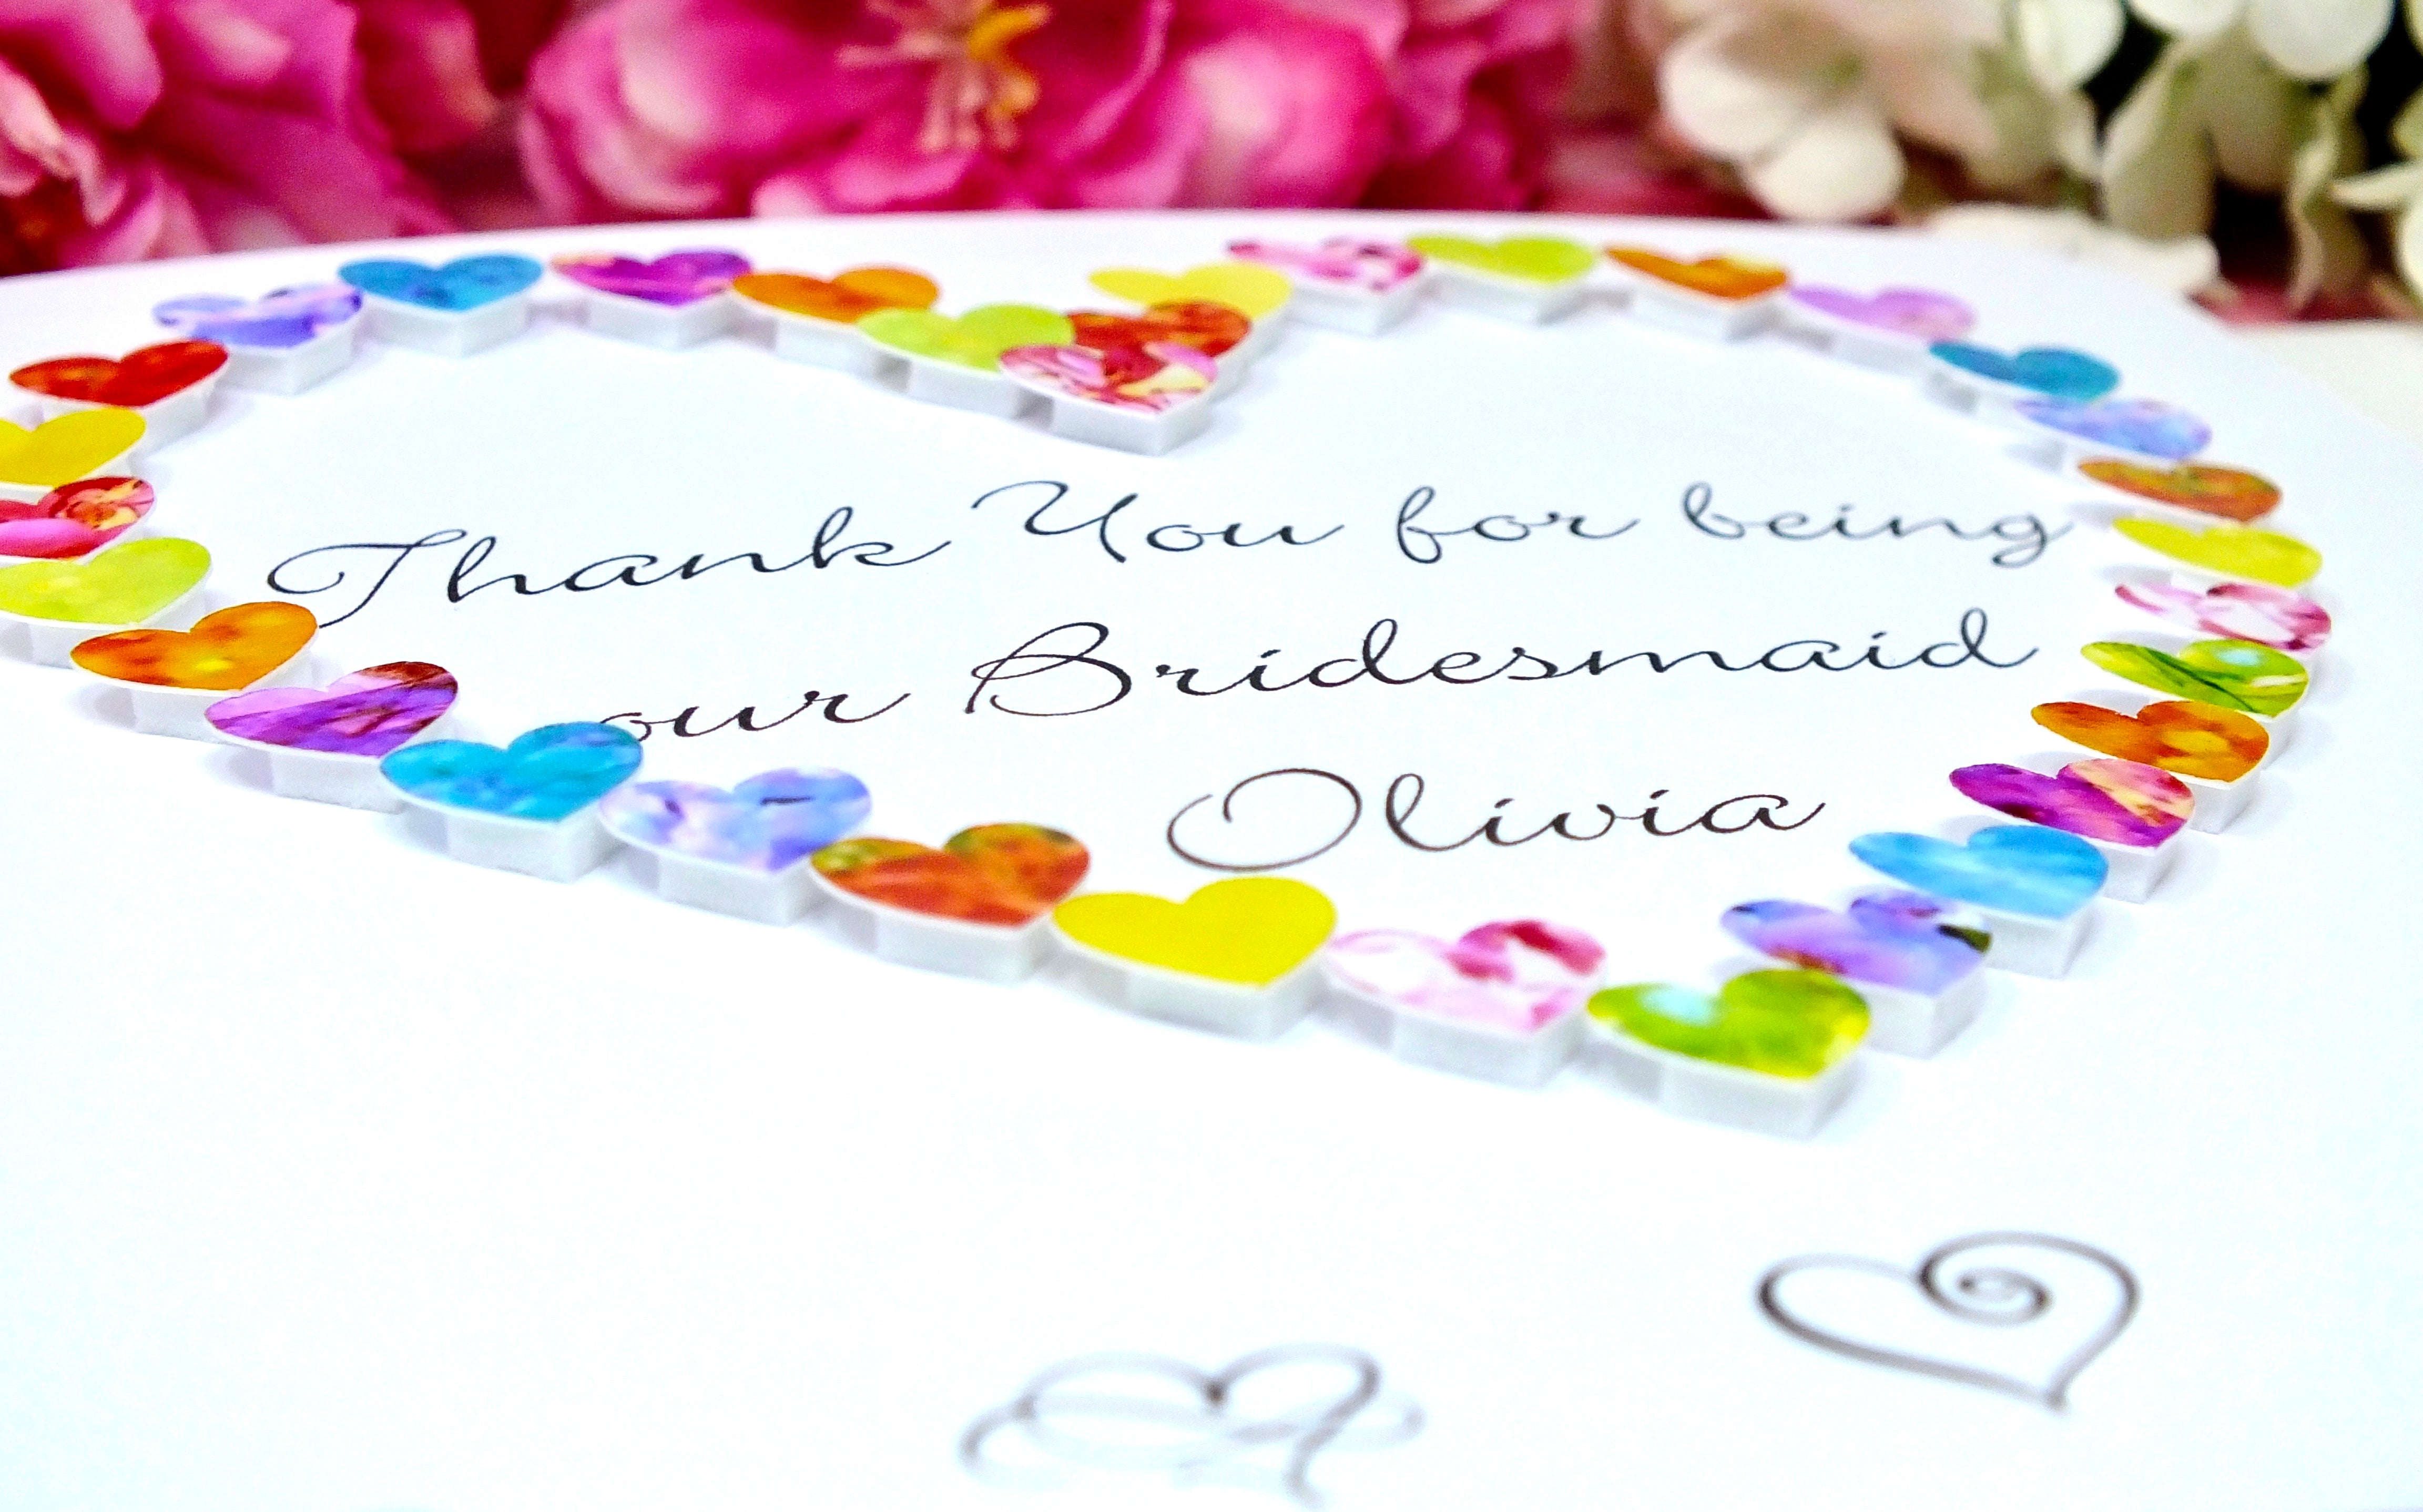 Thank You for being
our Bridesmaid
Olivia